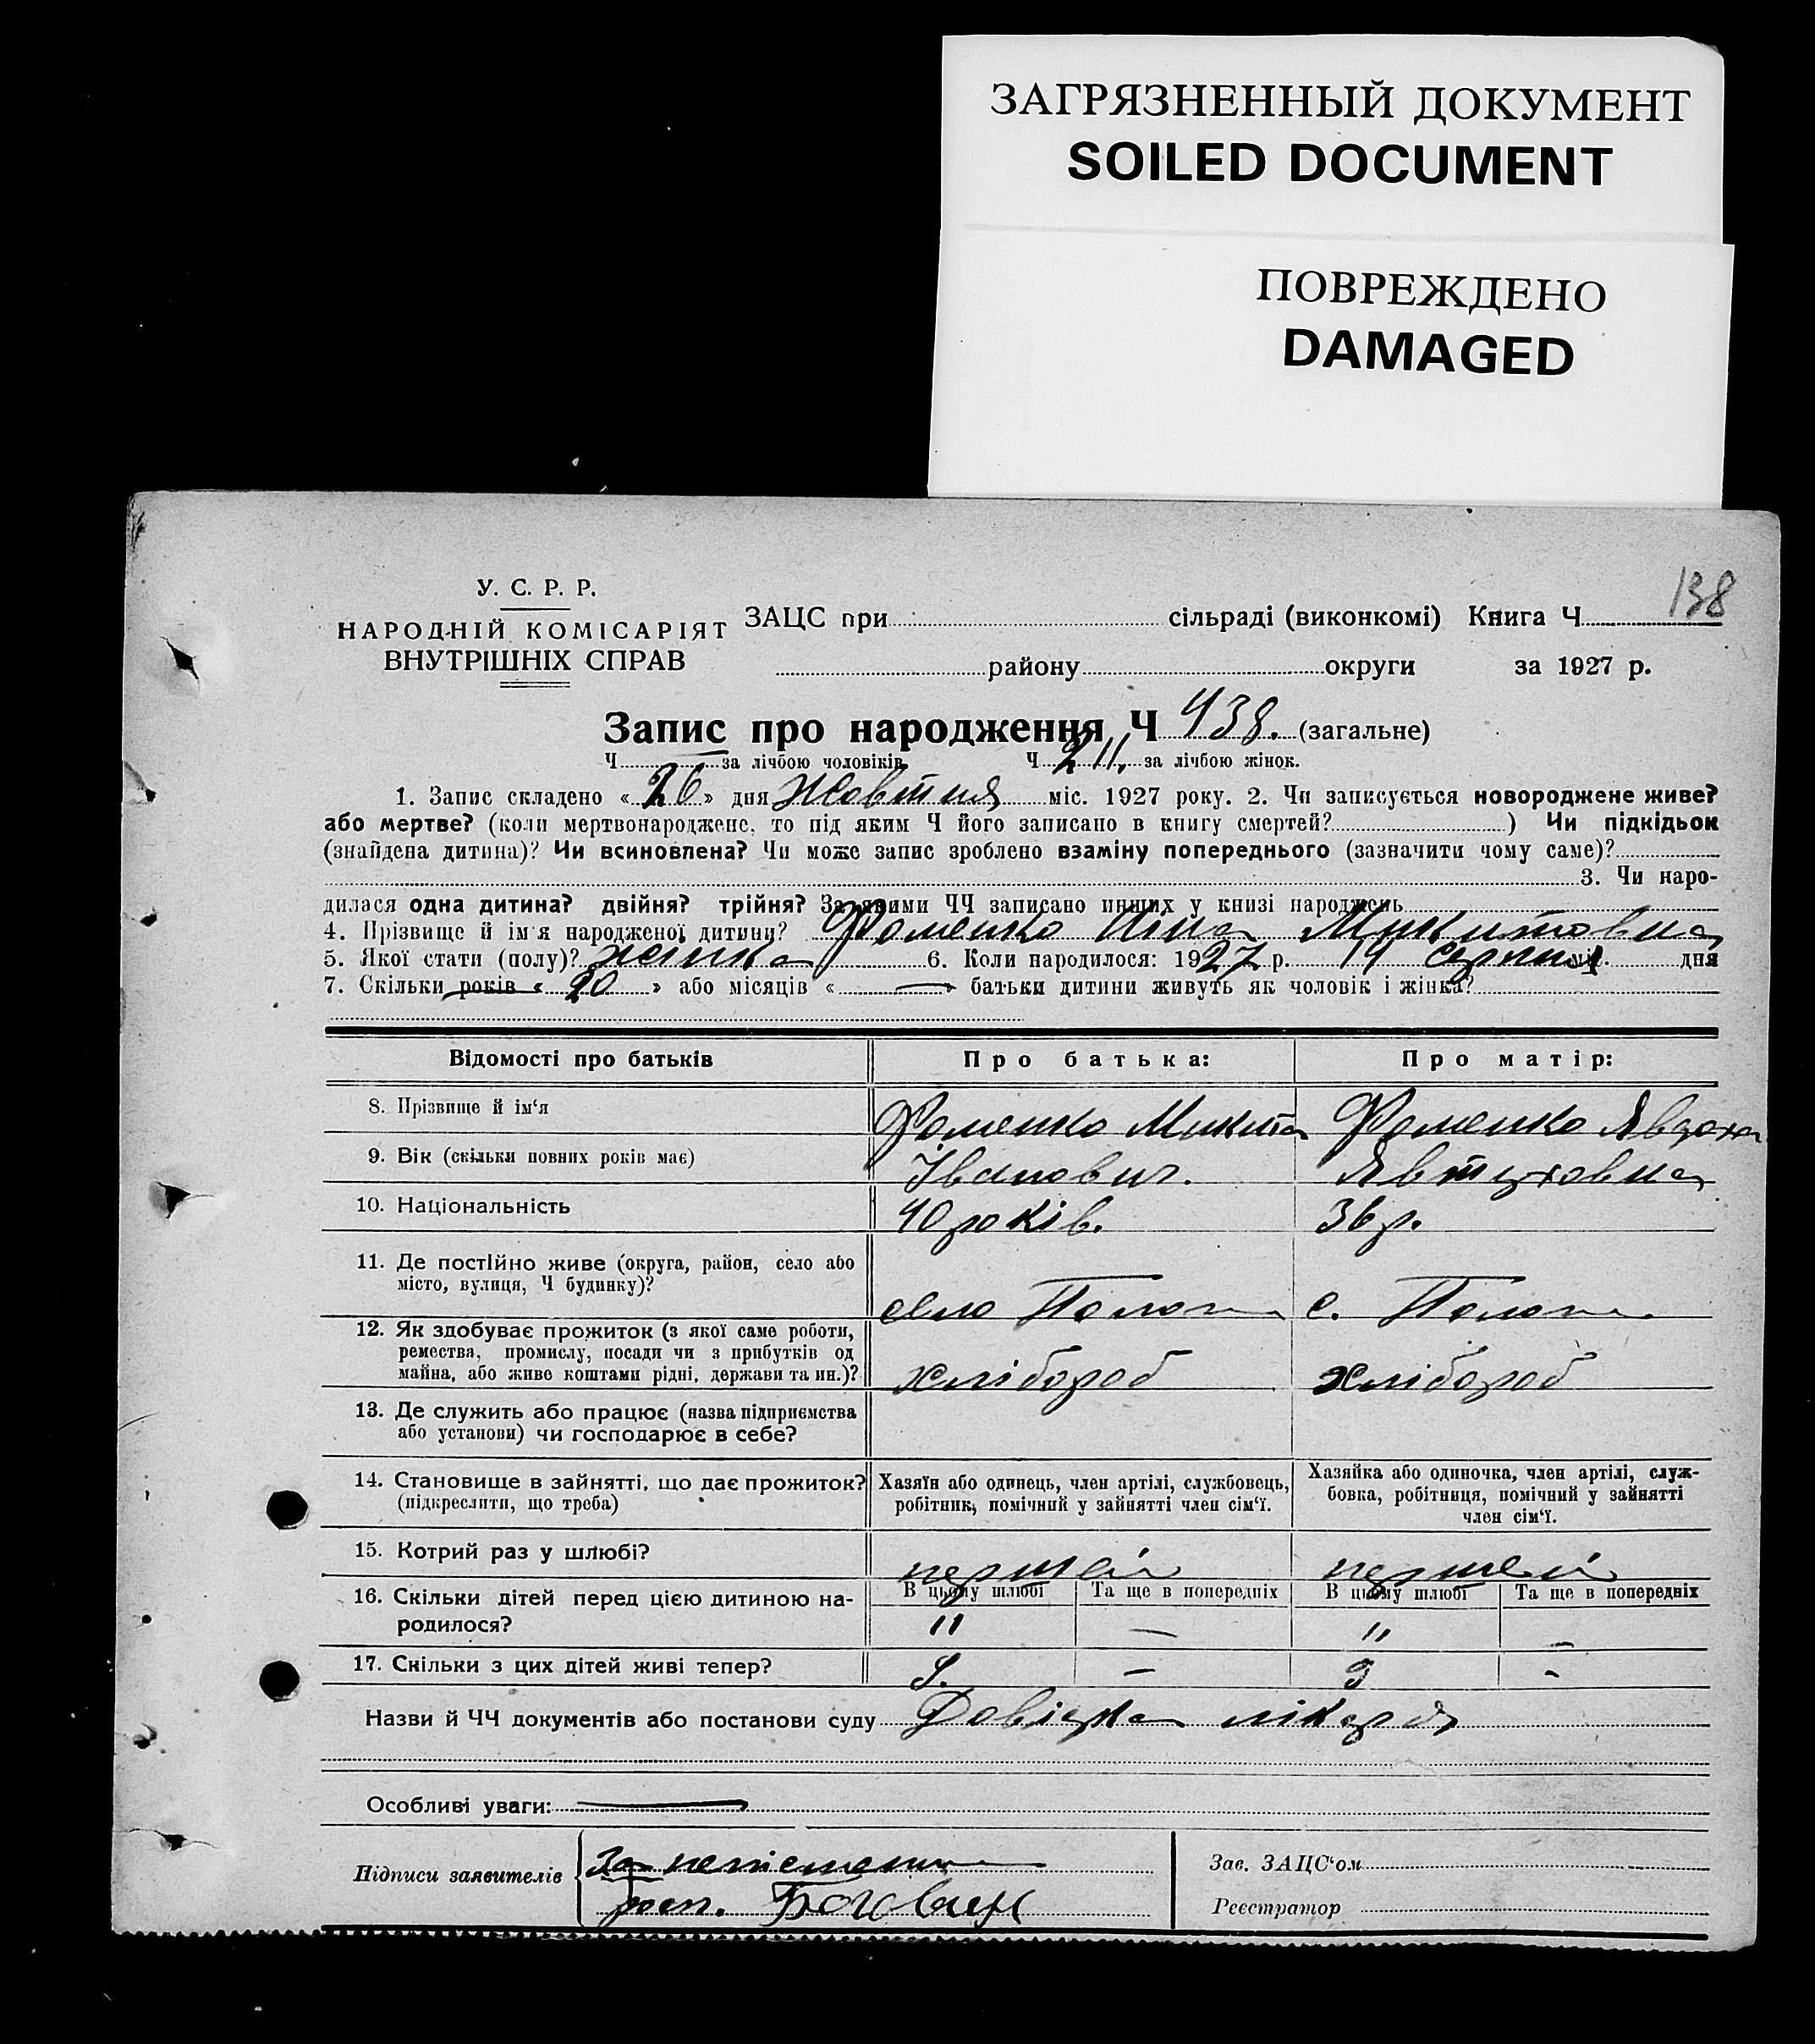 ЗАГРЯЗНЕННЫЙ ДОКУМЕНТ
SOILED DOCUMENT
ПОВРЕЖДЕНО
DAMAGED
138
У. С. Р. Р.
НАРОДНІЙ КОМІСАРІЯТ
ВНУТРІШНІХ СПРАВ
ЗАЦС при сільраді (виконкомі) Книга Ч
району округи за 1927 р.
Запис про народження Ч 438. (загальне)
Ч за лічбою чоловіків. Ч 211. за лічбою жінок.
1. Запис складено «26» дня Жовтня міс. 1927 року. 2. Чи записується новороджене живе?
або мертве? (коли мертвонароджене, то під яким Ч його записано в книгу смертей? ) Чи підкідьок
(знайдена дитина)? Чи всиновлена? Чи може запис зроблено взаміну попереднього (зазначити чому саме)?
3. Чи наро-
дилася одна дитина? двійня? трійня? За якими ЧЧ записано инших у книзі народжень
4. Прізвище й ім'я народженої дитини? Фоменко Ніна Микитовна
5. Якої стати (полу)? жінка 6. Коли народилося: 1927 р. 14 серпня міс. дня
7. Скільки років «20» або місяців « — » батьки дитини живуть як чоловік і жінка?
Відомості про батьків Про батька: Про матір:
8. Прізвище й ім'я Фоменко Микита Фоменко Явдоха
9. Вік (скільки повних років має) Іванович. Явтуховна
10. Національність 40 років. 36 р.
11. Де постійно живе (округа, район, село або
місто, вулиця, Ч будинку)?
село Пологи с. Пологи
12. Як здобуває прожиток (з якої саме роботи,
ремества, промислу, посади чи з прибутків од
майна, або живе коштами рідні, держави та ин.)?
хлібороб хлібороб
13. Де служить або працює (назва підприємства
або установи) чи господарює в себе?
14. Становище в зайнятті, що дає прожиток?
(підкреслити, що треба)
Хазяїн або одинець, член артілі, службовець,
робітник, помічний у зайнятті член сім'ї.
Хазяйка або одиночка, член артілі, служ-
бовка, робітниця, помічний у зайнятті
член сім'ї.
15. Котрий раз у шлюбі? першей першей
16. Скільки дітей перед цією дитиною на-
родилося?
В цьому шлюбі Та ще в попередніх В цьому шлюбі Та ще в попередніх
11 — 11 —
17. Скільки з цих дітей живі тепер? 9. — 9 -
Назви й ЧЧ документів або постанови суду Довідка лікаря
Особливі уваги: —
Підписи заявителів
За неписьмени
росп.
Зав. ЗАЦС'ом
Реєстратор